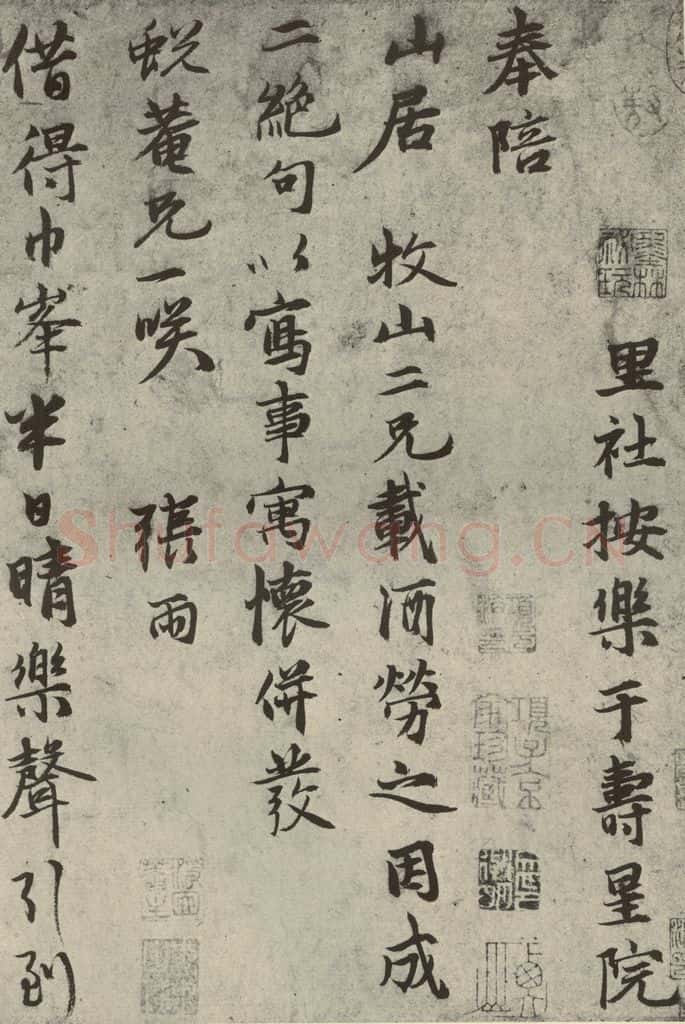 里社按樂于壽星院
奉陪
山居 牧山二兄載酒勞之因成
二絕句以寫事寓懷併發
蛻菴兄一咲 張雨
借得巾峯半日晴樂聲引到
Shufawang.CN